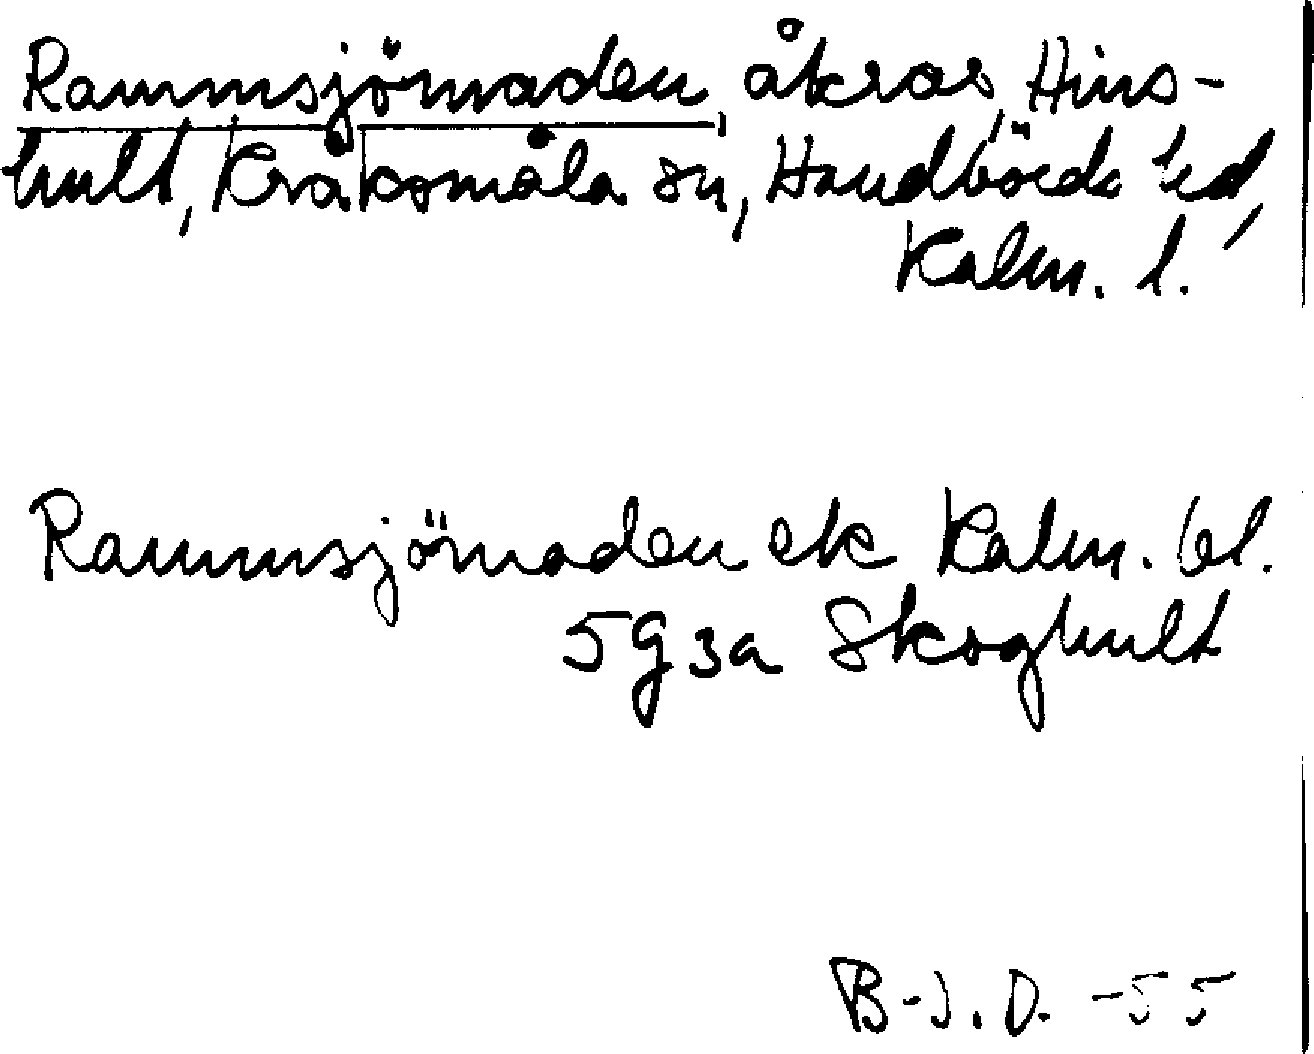 Rammsjömaden, åkrar, Hins-
hult, Kråksmåla sn, Handbörds hd,
Kalm. l.
Rammsjömaden ek Kalm. bl.
5 g 3a Skoghult
B-J. D. -55